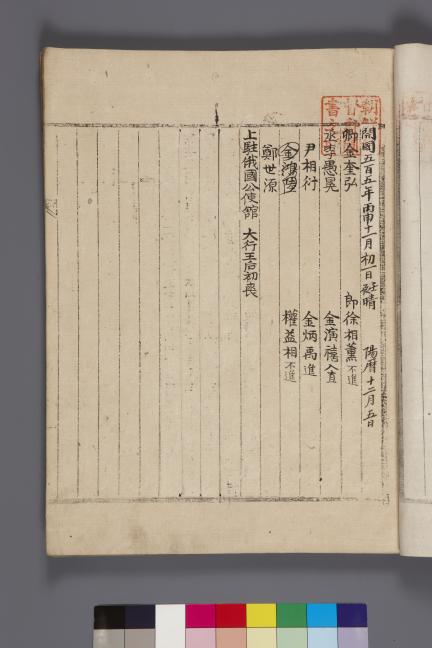 開國五百五年丙申十一月初一日壬辰晴 陽曆十二月五日
卿金奎弘 郎徐相薰不進
丞李愚冕 金演禧入直
尹相衍 金炳禹進
金 權益相不進
鄭世源
上駐俄國公使館 大行王后初喪